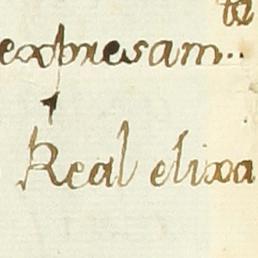 ta
expresam..
Real elixa